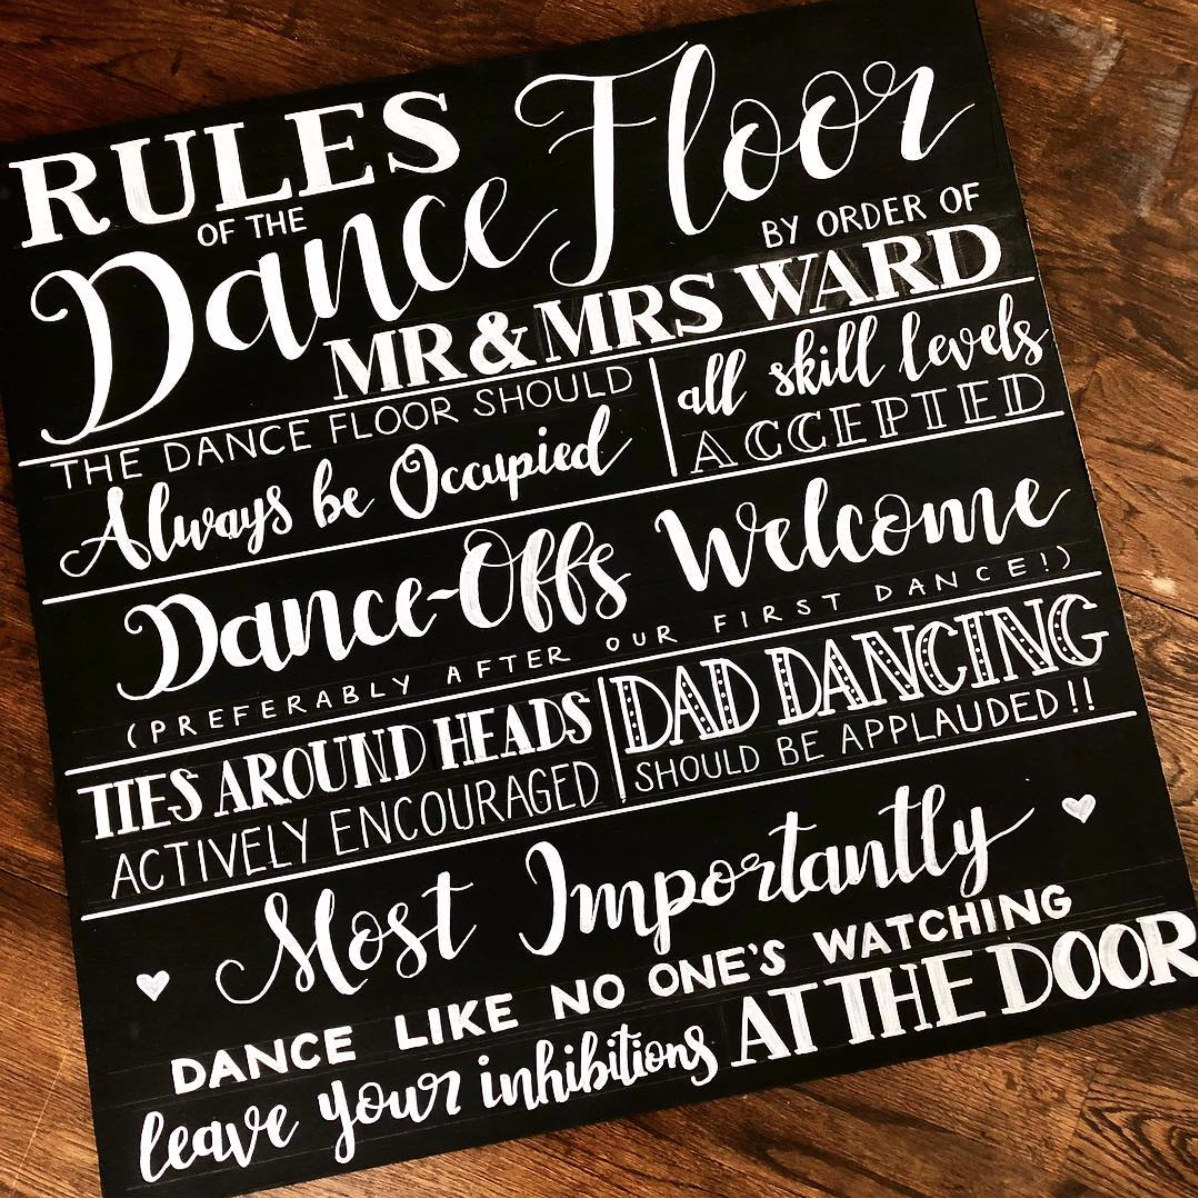 RULES
OF THE
Dance Floor
BY ORDER OF
MR & MRS WARD
THE DANCE FLOOR SHOULD
Always be Occupied
all skill levels
ACCEPTED
Dance-Offs Welcome
(PREFERABLY AFTER OUR FIRST DANCE!)
TIES AROUND HEADS
ACTIVELY ENCOURAGED
DAD DANCING
SHOULD BE APPLAUDED!!
Most Importantly
DANCE LIKE NO ONE'S WATCHING
leave your inhibitions AT THE DOOR